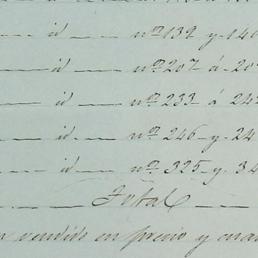 id nos 132 y 140
id nos 207 á 20
id nos 233 á 24
id nos 246 y 24
id nos 325 y 34
Total
vendido en precio y